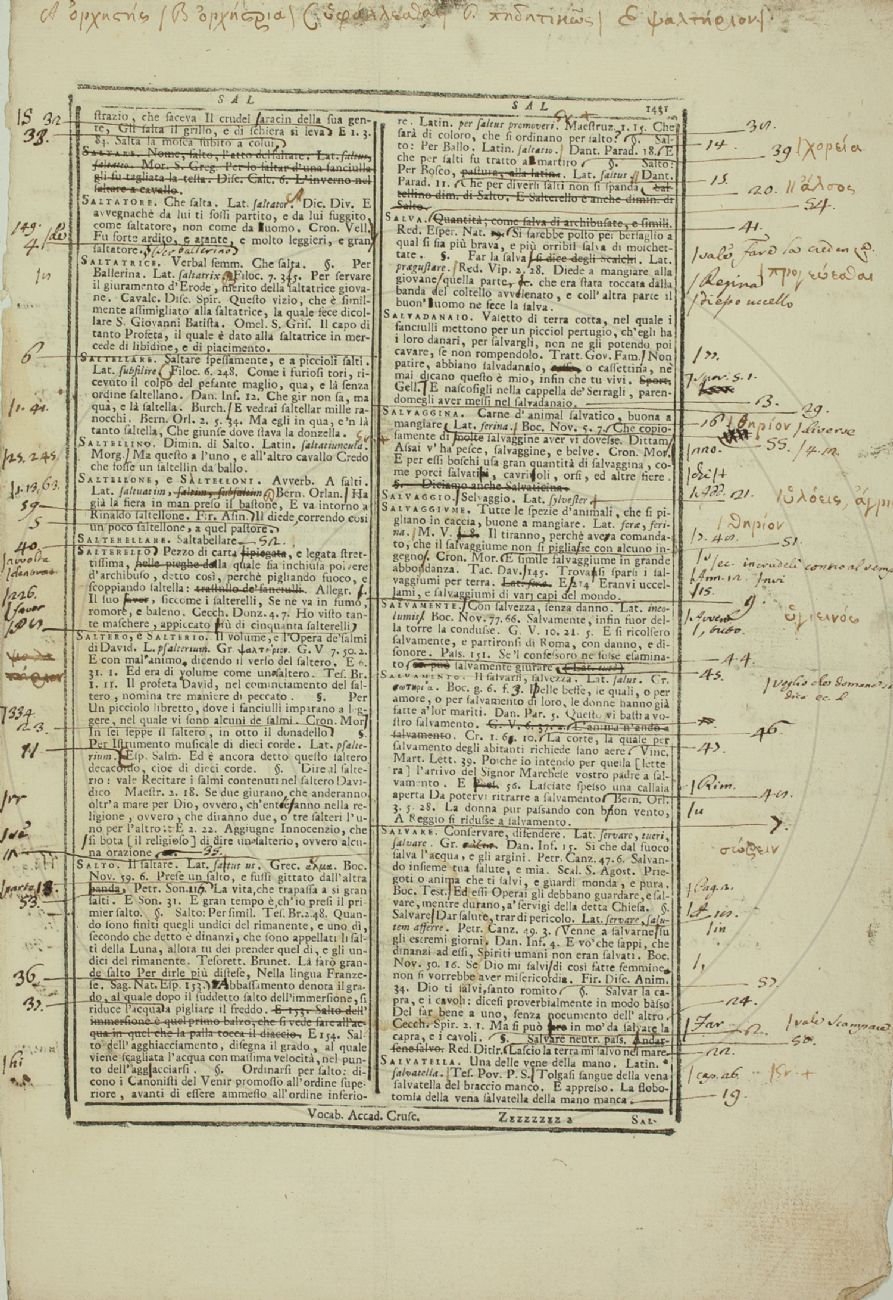 A ὀρχηστής / B ὀρχήστρια / C
πηδητικῶς / E ψαλτήριον
SAL
strazio, che faceva Il crudel saracin della sua gen-
te, Gli salta il grillo, e di schiera si leva. E 1. 3.
83. Salta la mosca subito a colui.
SALTARE. Nome, salto, l'atto del saltare. Lat. saltus,
saltatio. Mor. S. Greg. Per lo saltar d'una fanciulla
gli fu tagliata la testa. Disc. Calc. 6. L'inverno nel
saltare a cavallo.
SALTATORE. Che salta. Lat. saltator. Dic. Div. E
avvegnachè da lui ti fossi partito, e da lui fuggito,
come saltatore, non come da uomo. Cron. Vell.
Fu forte ardito, e atante, e molto leggieri, e gran
saltatore.
SALTATRICE. Verbal femm. Che salta. §. Per
Ballerina. Lat. saltatrix. Filoc. 7. 345. Per servare
il giuramento d'Erode, merito della saltatrice giova-
ne. Cavalc. Disc. Spir. Questo vizio, che è simil-
mente assimigliato alla saltatrice, la quale fece dicol-
lare S. Giovanni Batista. Omel. S. Gris. Il capo di
tanto Profeta, il quale è dato alla saltatrice in mer-
cede di libidine, e di piacimento.
SALTELLARE. Saltare spessamente, e a piccioli salti.
Lat. subsilire. Filoc. 6. 248. Come i furiosi tori, ri-
cevuto il colpo del pesante maglio, qua, e là senza
ordine saltellano. Dan. Inf. 12. Che gir non sa, ma
qua, e là saltella. Burch. E vedrai saltellar mille ra-
nocchi. Bern. Orl. 2. 5. 34. Ma egli in qua, e'n là
tanto saltella, Che giunse dove stava la donzella.
SALTELLINO. Dimin. di Salto. Latin. saltatiuncula.
Morg. Ma questo a l'uno, e all'altro cavallo Credo
che fosse un saltellin da ballo.
SALTELLONE, e SALTELLONI. Avverb. A salti.
Lat. saltuatim, saltim, subsultim. Bern. Orlan. Ha
già la fiera in man preso il bastone, E va intorno a
Rinaldo saltellone. Fir. Asin. Il diede correndo così
un poco saltellone, a quel pastore.
SALTERELLARE. Saltabellare.
SALTERELLO. Pezzo di carta ripiegata, e legata stret-
tissima, nelle pieghe della quale sia inchiusa polvere
d'archibuso, detto così, perchè pigliando fuoco, e
scoppiando saltella: trastullo de'fanciulli. Allegr.
Il suo favor, siccome i salterelli, Se ne va in fumo,
romore, e baleno. Cecch. Donz. 4. 7. Ho visto tan-
te maschere, appiccato più di cinquanta salterelli
SALTERO, E SALTERIO. Il volume, e l'Opera de'salmi
di David. L. psalterium. Gr. ψαλτήριον. G. V. 7. 50. 2.
E con mal'animo, dicendo il verso del saltero. E 6.
31. 1. Ed era di volume come un saltero. Tes. Br.
1. 15. Il profeta David, nel cominciamento del sal-
tero, nomina tre maniere di peccato. §. Per
Un picciolo libretto, dove i fanciulli imparano a leg-
gere, nel quale vi sono alcuni de salmi. Cron. Mor.
In sei seppe il saltero, in otto il donadello. §.
Per Istrumento musicale di dieci corde. Lat. psalte-
rium. Esp. Salm. Ed è ancora detto questo saltero
decacordo, cioè di dieci corde. §. Dire il salte-
rio: vale Recitare i salmi contenuti nel saltero Davi-
dico. Maestr. 2. 18. Se due giurano, che anderanno
oltr'a mare per Dio, ovvero, ch'enterranno nella re-
ligione, ovvero, che diranno due, o tre salteri l'u-
no per l'altro: E 2. 22. Aggiugne Innocenzio, che
si bota [il religioso] di dire un salterio, ovvero alcu-
na orazione
SALTO. Il saltare. Lat. saltus us. Grec. ἅλμα. Boc.
Nov. 59. 6. Prese un salto, e fussi gittato dall'altra
banda. Petr. Son. 116. La vita, che trapassa a sì gran
salti. E Son. 31. E gran tempo è, ch'io presi il pri-
mier salto. §. Salto: Per simil. Tes. Br. 2. 48. Quan-
do sono finiti quegli undici del rimanente, e uno dì,
secondo che detto è dinanzi, che sono appellati li sal-
ti della Luna, allora tu dei prender quel dì, e gli un-
dici del rimanente. Tesorett. Brunet. Là farò gran-
de salto Per dirle più distese, Nella lingua Franze-
se. Sag. Nat. Esp. 153. Abbassamento denota il gra-
do, al quale dopo il suddetto salto dell'immersione, si
riduce l'acqua a pigliare il freddo. E 153. Salto dell'
immersione è quel primo balzo, che si vede fare all'ac-
qua in quel che la palla tocca il diaccio. E 154. Sal-
to dell'agghiacciamento, disegna il grado, al quale
viene scagliata l'acqua con massima velocità, nel pun-
to dell'agghiacciarsi. §. Ordinarsi per salto: di-
cono i Canonisti del Venir promosso all'ordine supe-
riore, avanti di essere ammesso all'ordine inferio-
SAL 1431
re. Latin. per saltus promoveri. Maestruz. 1. 15. Che
sarà di coloro, che si ordinano per salto? §. Sal-
to: Per Ballo. Latin. saltatio. Dant. Parad. 18. E
che per salti fu tratto a martiro §. Salto:
Per Bosco, pastura, alla latina. Lat. saltus. Dant.
Parad. 11. Che per diversi salti non si spanda. Sal-
tellino dim. di Salto. E Salterello è anche dimin. di
Salto.
SALVA. Quantità; come salva di archibusate, e simili.
Red. Esper. Nat. Si sarebbe posto per bersaglio a
qual si sia più brava, e più orribil salva di moschet-
tate. §. Far la salva si dice degli Scalchi. Lat.
prægustare. Red. Vip. 2. 28. Diede a mangiare alla
giovane quella parte, che era stata toccata dalla
banda del coltello avvelenato, e coll'altra parte il
buon'uomo ne fece la salva.
SALVADANAIO. Vasetto di terra cotta, nel quale i
fanciulli mettono per un picciol pertugio, ch'egli ha
i loro danari, per salvargli, non ne gli potendo poi
cavare, se non rompendolo. Tratt. Gov. Fam. Non
patire, abbiano salvadanaio, o cassettina, ne
mai dicano questo è mio, infin che tu vivi. Sport.
Gell. E nascosigli nella cappella de'Serragli, paren-
domegli aver messi nel salvadanaio.
SALVAGGINA. Carne d'animal salvatico, buona a
mangiare. Lat. ferina. Boc. Nov. 5. 7. Che copio-
samente di molte salvaggine aver vi dovesse. Dittam.
Assai v'ha pesce, salvaggine, e belve. Cron. Mor.
E per essi boschi usa gran quantità di salvaggina, co-
me porci salvatichi, cavrioli, orsi, ed altre fiere.
§. Diciamo anche Salvaticina.
SALVAGGIO. Selvaggio. Lat. sylvester.
SALVAGGIUME. Tutte le spezie d'animali, che si pi-
gliano in caccia, buone a mangiare. Lat. feræ, feri-
na. M. V. 1. 8. Il tiranno, perchè avea comanda-
to, che il salvaggiume non si pigliasse con alcuno in-
gegno. Cron. Mor. E simile salvaggiume in grande
abbondanza. Tac. Dav. 145. Trovansi sparsi i sal-
vaggiumi per terra. E 274. Eranvi uccel-
lami, e salvaggiumi di varj capi del mondo.
SALVAMENTE. Con salvezza, senza danno. Lat. inco-
lumis. Boc. Nov. 77. 66. Salvamente, infin fuor del-
la torre la condusse. G. V. 10. 21. 5. E si ricolsero
salvamente, e partironsi di Roma, con danno, e di-
sonore. Pass. 151. Se'l confessoro ne fosse esamina-
to salvamente giurare.
SALVAMENTO. Il salvarsi, salvezza. Lat. salus. Gr.
σωτηρία. Boc. g. 6. f. 3. Delle beffe, le quali, o per
amore, o per salvamento di loro, le donne hanno già
fatte a'lor mariti. Dan. Par. 5. Questo vi basti a vo-
stro salvamento. G. V. 6. 37. 2. E'n anima n'ando a
salvamento. Cr. 1. 6. 10. La corte, la quale per
salvamento degli abitanti richiede sano aere. Vinc.
Mart. Lett. 39. Poichè io intendo per quella [lette-
ra] l'arrivo del Signor Marchese vostro padre a sal-
vamento. E 56. Lasciate spesso una callaia
aperta Da potervi ritrarre a salvamento. Bern. Orl.
3. 5. 28. La donna pur passando con buon vento,
A Reggio si ridusse a salvamento.
SALVARE. Conservare, difendere. Lat. servare, tueri,
salvare. Gr. Dan. Inf. 15. Sì che dal fuoco
salva l'acqua, e gli argini. Petr. Canz. 47. 6. Salvan-
do insieme tua salute, e mia. Scal. S. Agost. Prie-
goti o anima che ti salvi, e guardi monda, e pura.
Boc. Test. Ed essi Operai gli debbano guardare, e sal-
vare, mentre durano, a'servigi della detta Chiesa. §.
Salvare Dar salute, trar di pericolo. Lat. servare, salu-
tem afferre. Petr. Canz. 49. 3. Venne a salvarne su
gli estremi giorni. Dan. Inf. 4. E vo'che sappi, che
dinanzi ad essi, Spiriti umani non eran salvati. Boc.
Nov. 50. 16. Se Dio mi salvi di così fatte femmine
non si vorrebbe aver misericordia. Fir. Disc. Anim.
34. Dio ti salvi, santo romito §. Salvar la ca-
pra, e i cavoli: dicesi proverbialmente in modo basso
Del far bene a uno, senza nocumento dell'altro.
Cecch. Spir. 2. 1. Ma si può fare in mo'da salvare la
capra, e i cavoli. §. Salvare neutr. pass. Andar-
sene salvo. Red. Ditir. Lascio la terra mi salvo nel mare.
SALVATELLA. Una delle vene della mano. Latin.
salvatella. Tes. Pov. P. S. Tolgasi sangue della vena
salvatella del braccio manco. E appresso. La flobo-
tomia della vena salvatella della mano manca.
Vocab. Accad. Crusc. Zzzzzzz 2 SAL-
149.
6
40
226.
23.
11
33.
36
30.
14.
39 / χορεία
15.
20. / ἄλσος
54.
41.
προγεύεσθαι
/ Repina
13. 29.
16 / θηρίον / diverse
55.
/ θηρίον
51.
ὑγιεινός
44.
45.
46.
/ Rim.
7.
σώζειν
24.
/ Far / vale scampare
22.
19.